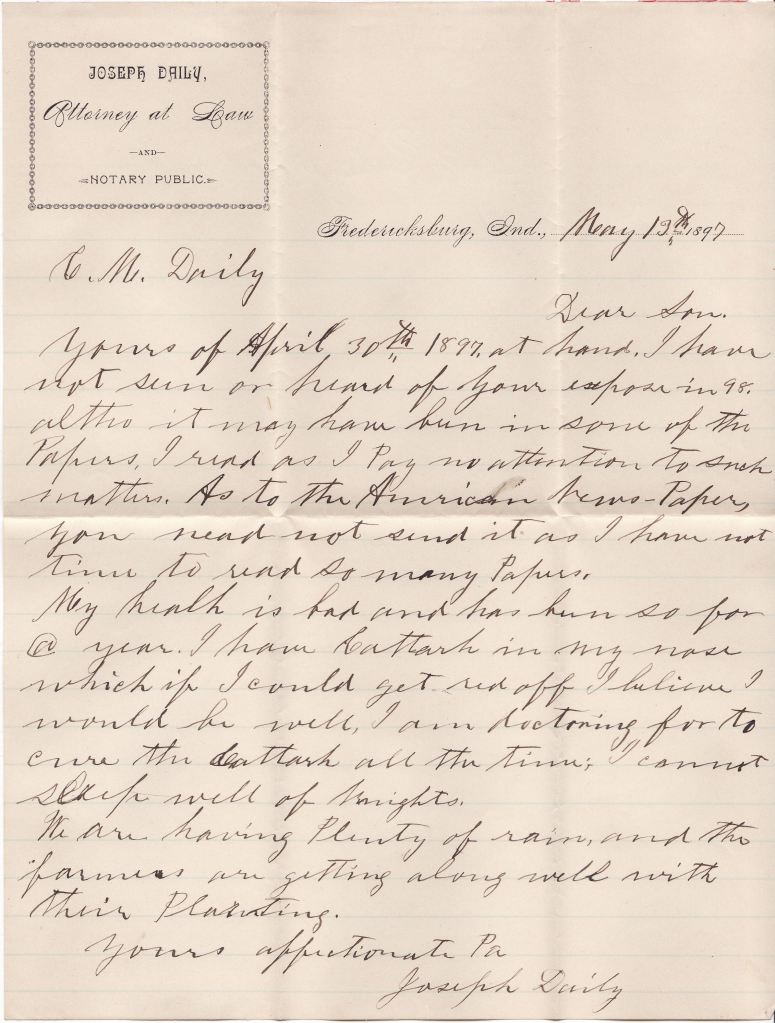 JOSEPH DAILY,
Attorney at Law
—AND—
NOTARY PUBLIC.
Fredericksburg, Ind., May 13th 1897
C. M. Daily
Dear Son.
Yours of April 30th 1897, at hand. I have
not seen or heard of your expose in 98.
altho it may have ben in some of the
Papers, I read as I Pay no attention to such
matters. As to the American News-Paper,
you nead not send it as I have not
time to read so many Papers.
My health is bad and has ben so for
@ year. I have Cattarh in my nose
which if I could get red off I believe I
would be well, I am doctoring for to
cure the Cattarh all the time; I cannot
sleep well of knights.
We are having Plenty of rain, and the
farmers are getting along well with
their Planting.
Yours affectionate Pa
Joseph Daily